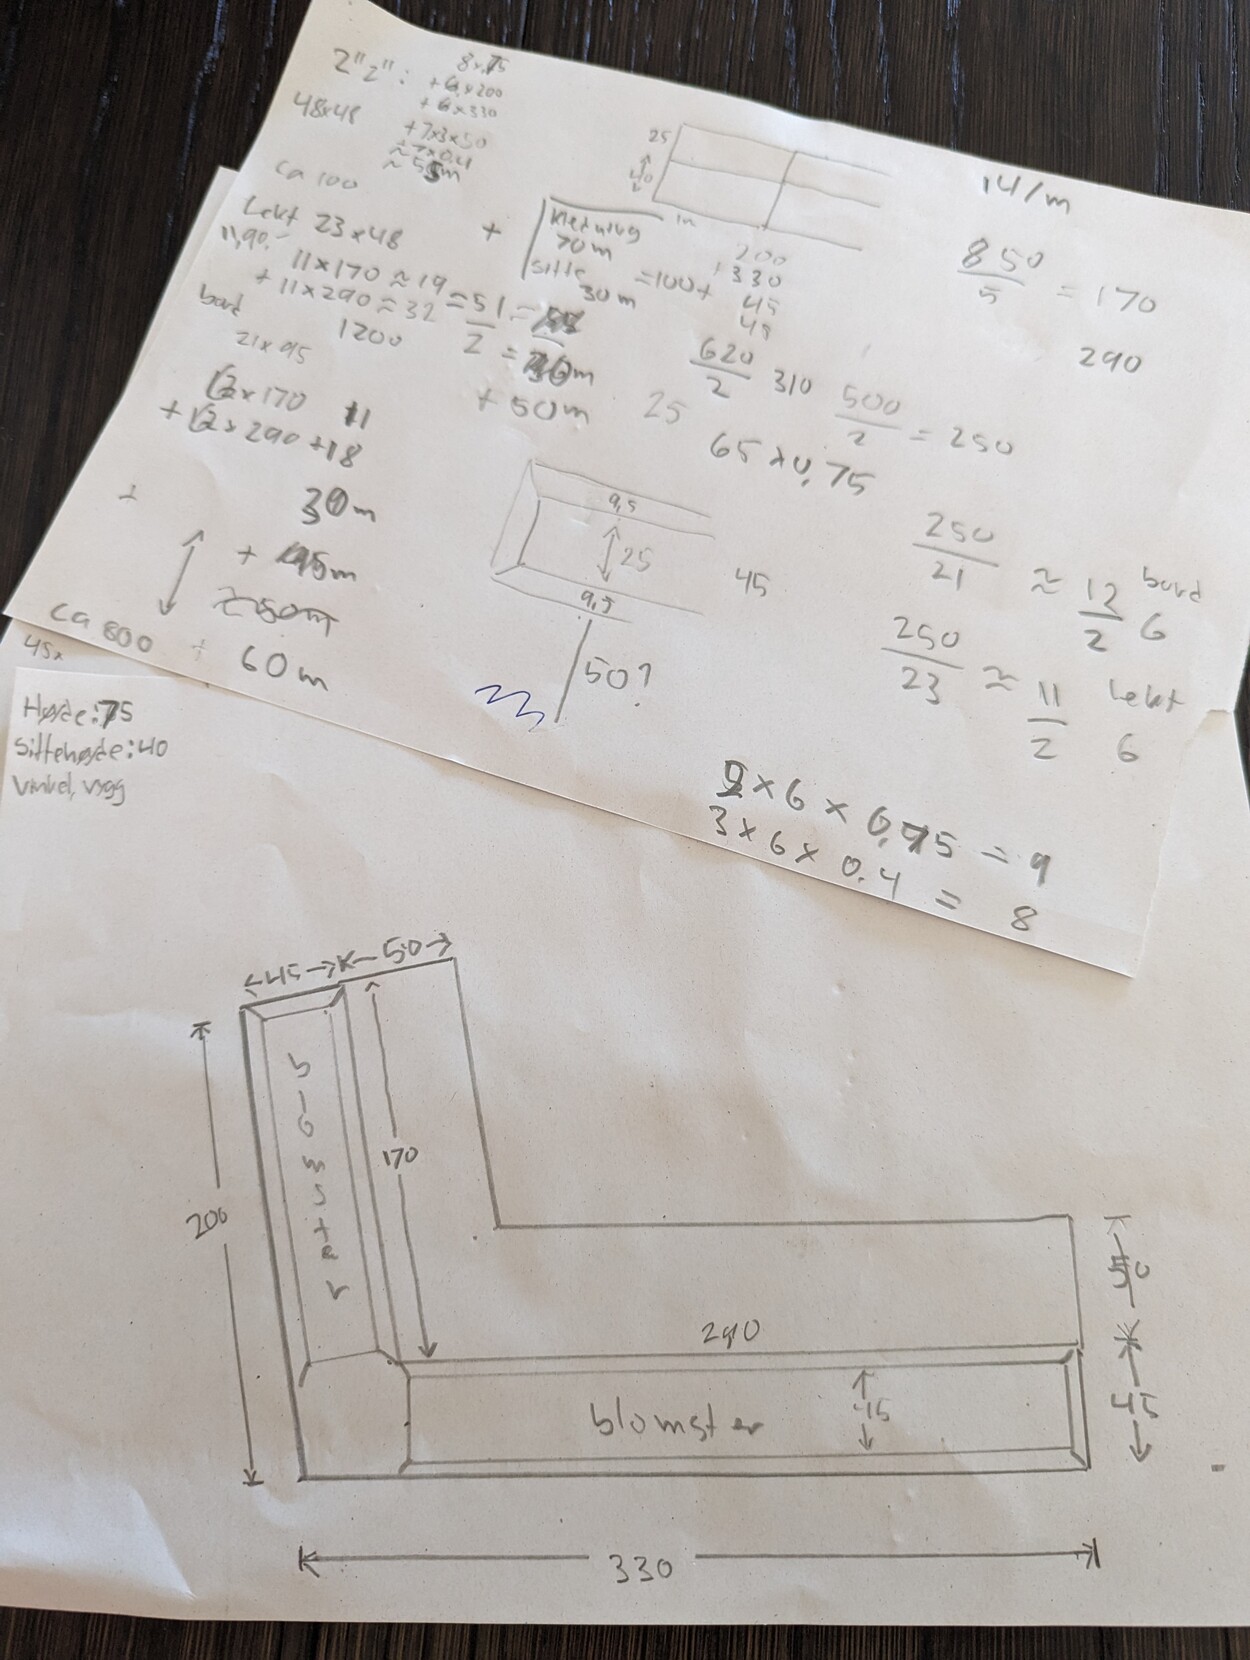 2"2":
48x48
8x75
+6x200
+6x330
+7x3x50
≈7x0.4
≈55m
ca 100
Lekt 23x48
11,90,-
11x170 ≈ 19
+ 11x290 ≈ 32
= 51
2
=
m
+ 50m
1200
bord
21x95
12x170 11
+ 12x290 +18
30m
+ 45m
≈50m
+ 60m
ca 800
45x
25
40
+
Kledning
70m
sitte
30m
=100+
200
+330
45
45
620
2
310
500
2
= 250
25
65x0,75
14/m
850
5
= 170
290
9,5
25
9,5
45
50?
250
21
≈ 12
2
bord
6
250
23
≈ 11
2
Lekt
6
2x6x0,75 = 9
3x6x0.4 = 8
Høyde:75
Sittehøyde:40
Vinkel, rygg
45
50
blomster
170
200
50
290
45
blomster
45
330